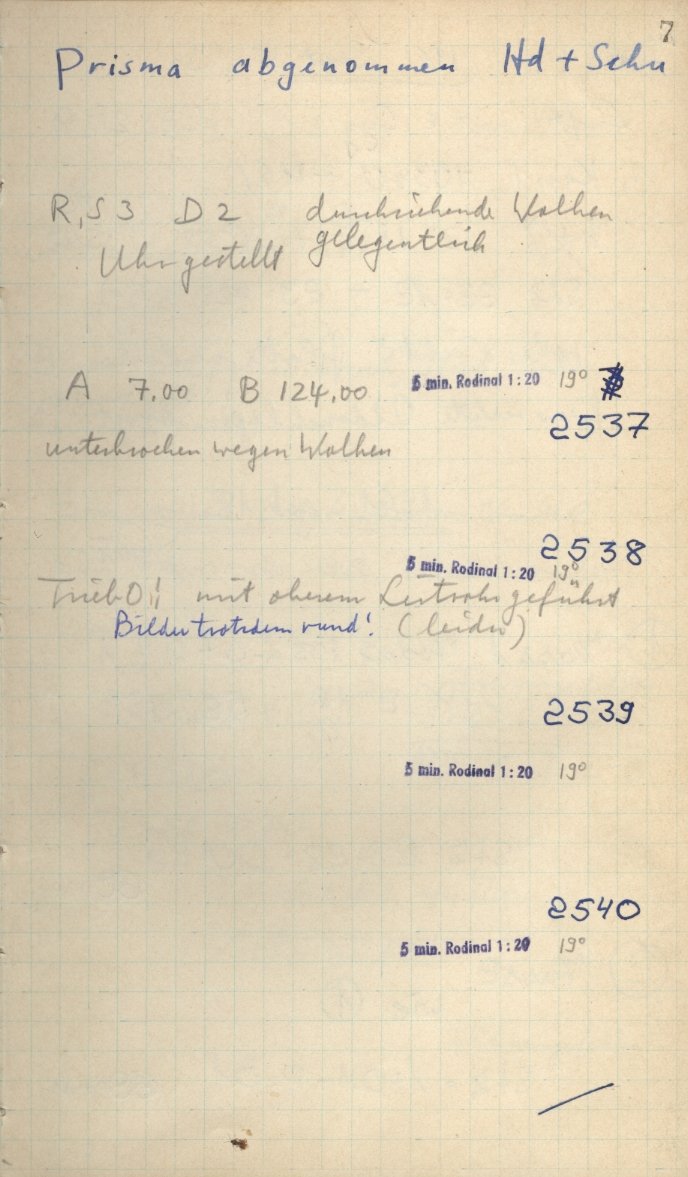 7
Prisma abgenommen Hd + Schu
R, S 3 D 2 durchziehende Wolken
Uhr gestellt gelegentlich
A 7.00 B 124.00 5 min. Rodinal 1:20 19°
2537
unterbrochen wegen Wolken
2538
5 min. Rodinal 1:20 19°
Trieb O!! mit oberem Leitrohr geführt
Bilder trotzdem rund! (leider)
2539
5 min. Rodinal 1:20 19°
2540
5 min. Rodinal 1:20 19°